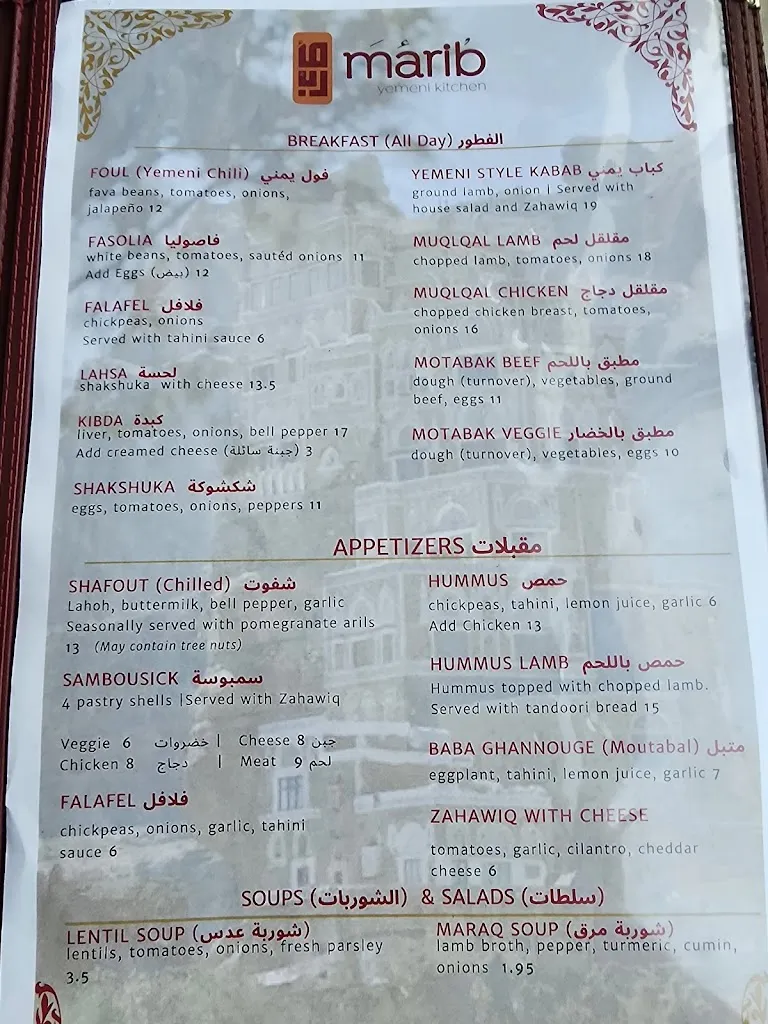 مأرب
marib
yemeni kitchen
BREAKFAST (All Day) الفطور
FOUL (Yemeni Chili) فول يمني
fava beans, tomatoes, onions,
jalapeño 12
FASOLIA فاصوليا
white beans, tomatoes, sautéd onions 11
Add Eggs (بيض) 12
FALAFEL فلافل
chickpeas, onions
Served with tahini sauce 6
LAHSA لحسة
shakshuka with cheese 13.5
KIBDA كبدة
liver, tomatoes, onions, bell pepper 17
Add creamed cheese (جبنة سائلة) 3
SHAKSHUKA شكشوكة
eggs, tomatoes, onions, peppers 11
YEMENI STYLE KABAB كباب يمني
ground lamb, onion | Served with
house salad and Zahawiq 19
MUQLQAL LAMB مقلقل لحم
chopped lamb, tomatoes, onions 18
MUQLQAL CHICKEN مقلقل دجاج
chopped chicken breast, tomatoes,
onions 16
MOTABAK BEEF مطبق باللحم
dough (turnover), vegetables, ground
beef, eggs 11
MOTABAK VEGGIE مطبق بالخضار
dough (turnover), vegetables, eggs 10
APPETIZERS مقبلات
SHAFOUT (Chilled) شفوت
Lahoh, buttermilk, bell pepper, garlic
Seasonally served with pomegranate arils
13 (May contain tree nuts)
SAMBOUSICK سمبوسة
4 pastry shells |Served with Zahawiq
Veggie 6 خضروات | Cheese 8 جبن
Chicken 8 دجاج | Meat 9 لحم
FALAFEL فلافل
chickpeas, onions, garlic, tahini
sauce 6
HUMMUS حمص
chickpeas, tahini, lemon juice, garlic 6
Add Chicken 13
HUMMUS LAMB حمص باللحم
Hummus topped with chopped lamb.
Served with tandoori bread 15
BABA GHANNOUGE (Moutabal) متبل
eggplant, tahini, lemon juice, garlic 7
ZAHAWIQ WITH CHEESE
tomatoes, garlic, cilantro, cheddar
cheese 6
SOUPS (الشوربات) & SALADS (سلطات)
LENTIL SOUP (شوربة عدس)
lentils, tomatoes, onions, fresh parsley
3.5
MARAQ SOUP (شوربة مرق)
lamb broth, pepper, turmeric, cumin,
onions 1.95